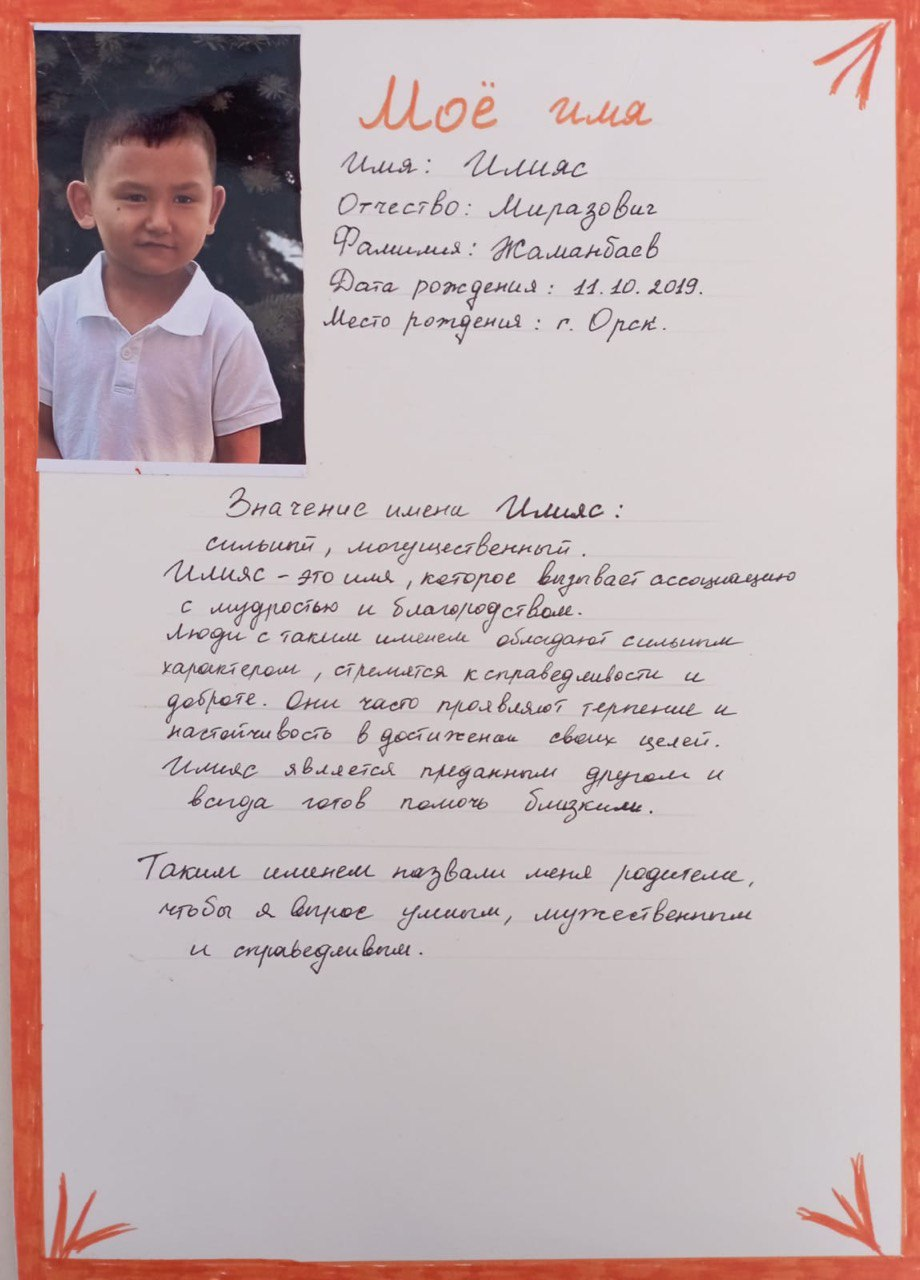 Моё имя
Имя: Илияс
Отчество: Миразович
Фамилия: Жаманбаев
Дата рождения: 11.10.2019.
Место рождения: г. Орск.
Значение имени Илияс:
сильный, могущественный.
Илияс - это имя, которое вызывает ассоциацию
с мудростью и благородством.
Люди с таким именем обладают сильным
характером, стремятся к справедливости и
доброте. Они часто проявляют терпение и
настойчивость в достижении своих целей.
Илияс является преданным другом и
всегда готов помочь близким.
Таким именем назвали меня родители,
чтобы я вырос умным, мужественным
и справедливым.